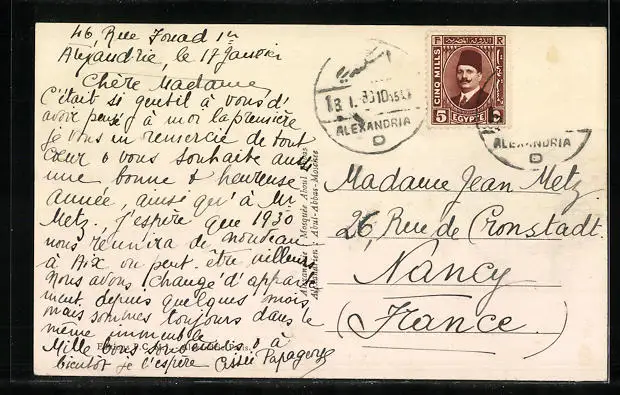 46, Rue Fouad 1er
Alexandrie, le 17 Janvier
Chère Madame,
C'était si gentil à vous d'
avoir pensé à moi la première
je vous en remercie de tout
cœur & vous souhaite aussi
une bonne & heureuse
année, ainsi qu'à Mr
Metz. J'espère que 1930
nous réunira de nouveau
à Aix ou peut-être ailleurs
Nous avons changé d'appar-
ment depuis quelques mois
mais sommes toujours dans le
même immeuble
Mille bons souvenirs & à
bientôt je l'espère Papageor
Alexandrie: Mosquée Aboul Abbas
Alexandrien: Abul-Abbas-Moschee
ALEXANDRIA
D
F R
CINQ MILLS
5 EGYPTE
ALEXANDRIA
D
Madame Jean Metz
26, Rue de Cronstadt.
Nancy
(France.)